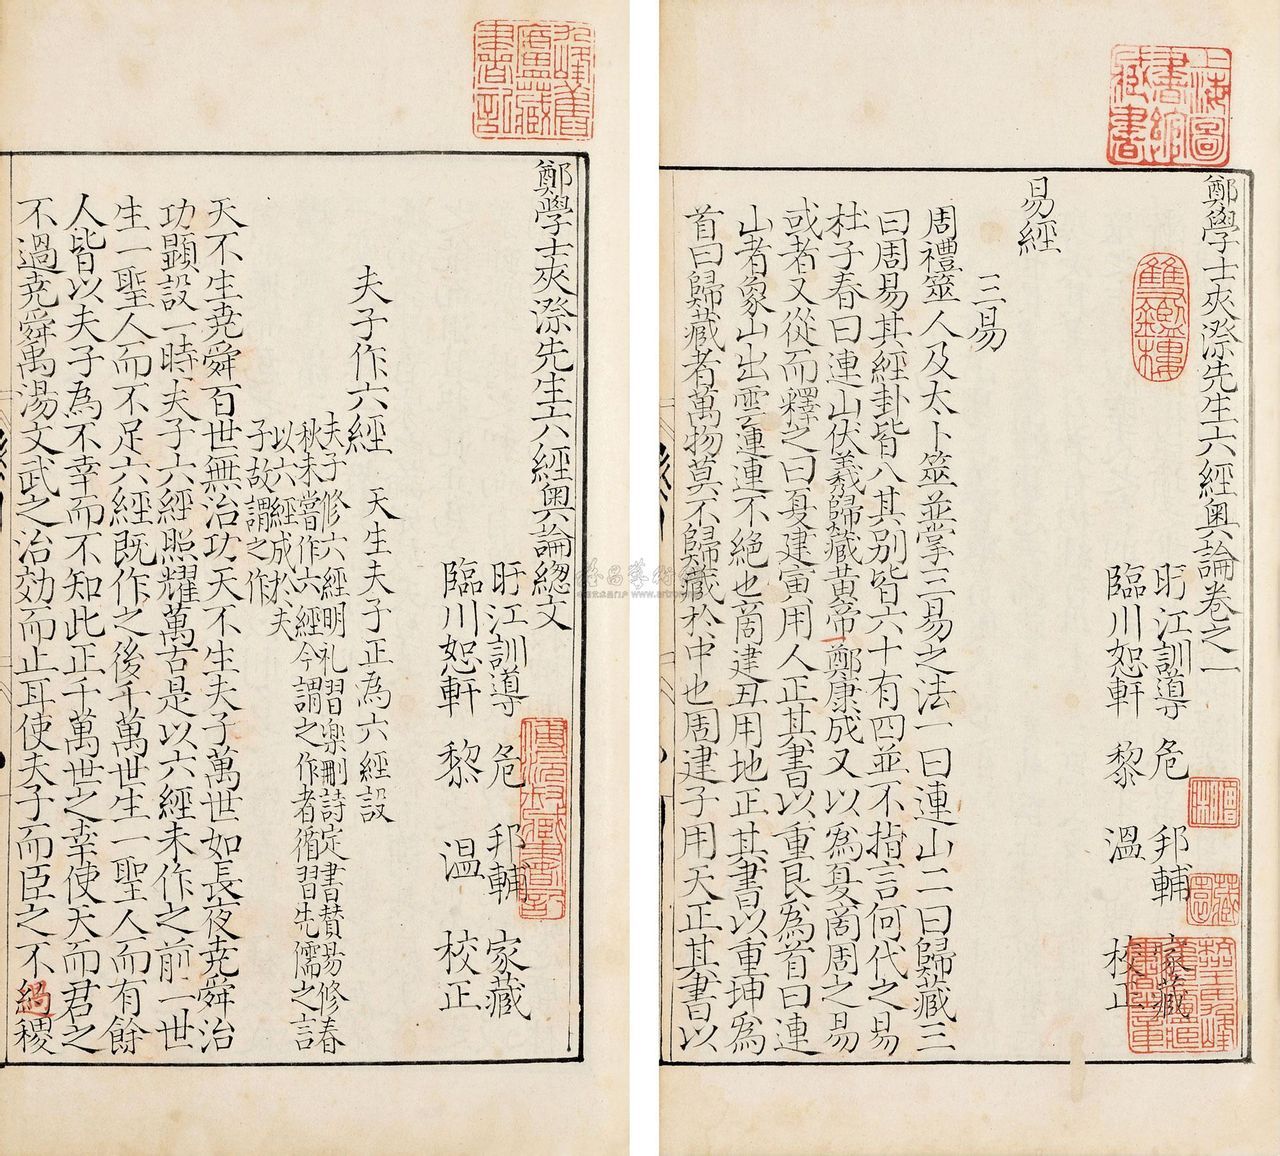 鄭學士夾漈先生六經奧論卷之一
盱江訓導 危 邦輔 家藏
臨川恕軒 黎 溫 校正
易經
三易
周禮筮人及太卜筮並掌三易之法一曰連山二曰歸藏三
曰周易其經卦皆八其别皆六十有四並不指言何代之易
杜子春曰連山伏羲歸藏黃帝鄭康成又以為夏商周之易
或者又從而釋之曰夏建寅用人正其書以重艮為首曰連
山者象山出雲連連不絕也商建丑用地正其書以重坤為
首曰歸藏者萬物莫不歸藏於中也周建子用天正其書以
上海圖書館藏書
雙鑑樓
鄭學士夾漈先生六經奧論總文
盱江訓導 危 邦輔 家藏
臨川恕軒 黎 溫 校正
夫子作六經 天生夫子正為六經設
夫子修六經明礼習楽刪詩定書賛易修春
秋未嘗作六經今謂之作者循習先儒之言
以六經成於夫
子故謂之作
天不生堯舜百世無治功天不生夫子萬世如長夜堯舜治
功顯設一時夫子六經照耀萬古是以六經未作之前一世
生一聖人而不足六經既作之後千萬世生一聖人而有餘
人皆以夫子為不幸而不知此正千萬世之幸使天而君之
不過堯舜禹湯文武之治効而止耳使夫子而臣之不過稷
傅沅叔藏書記